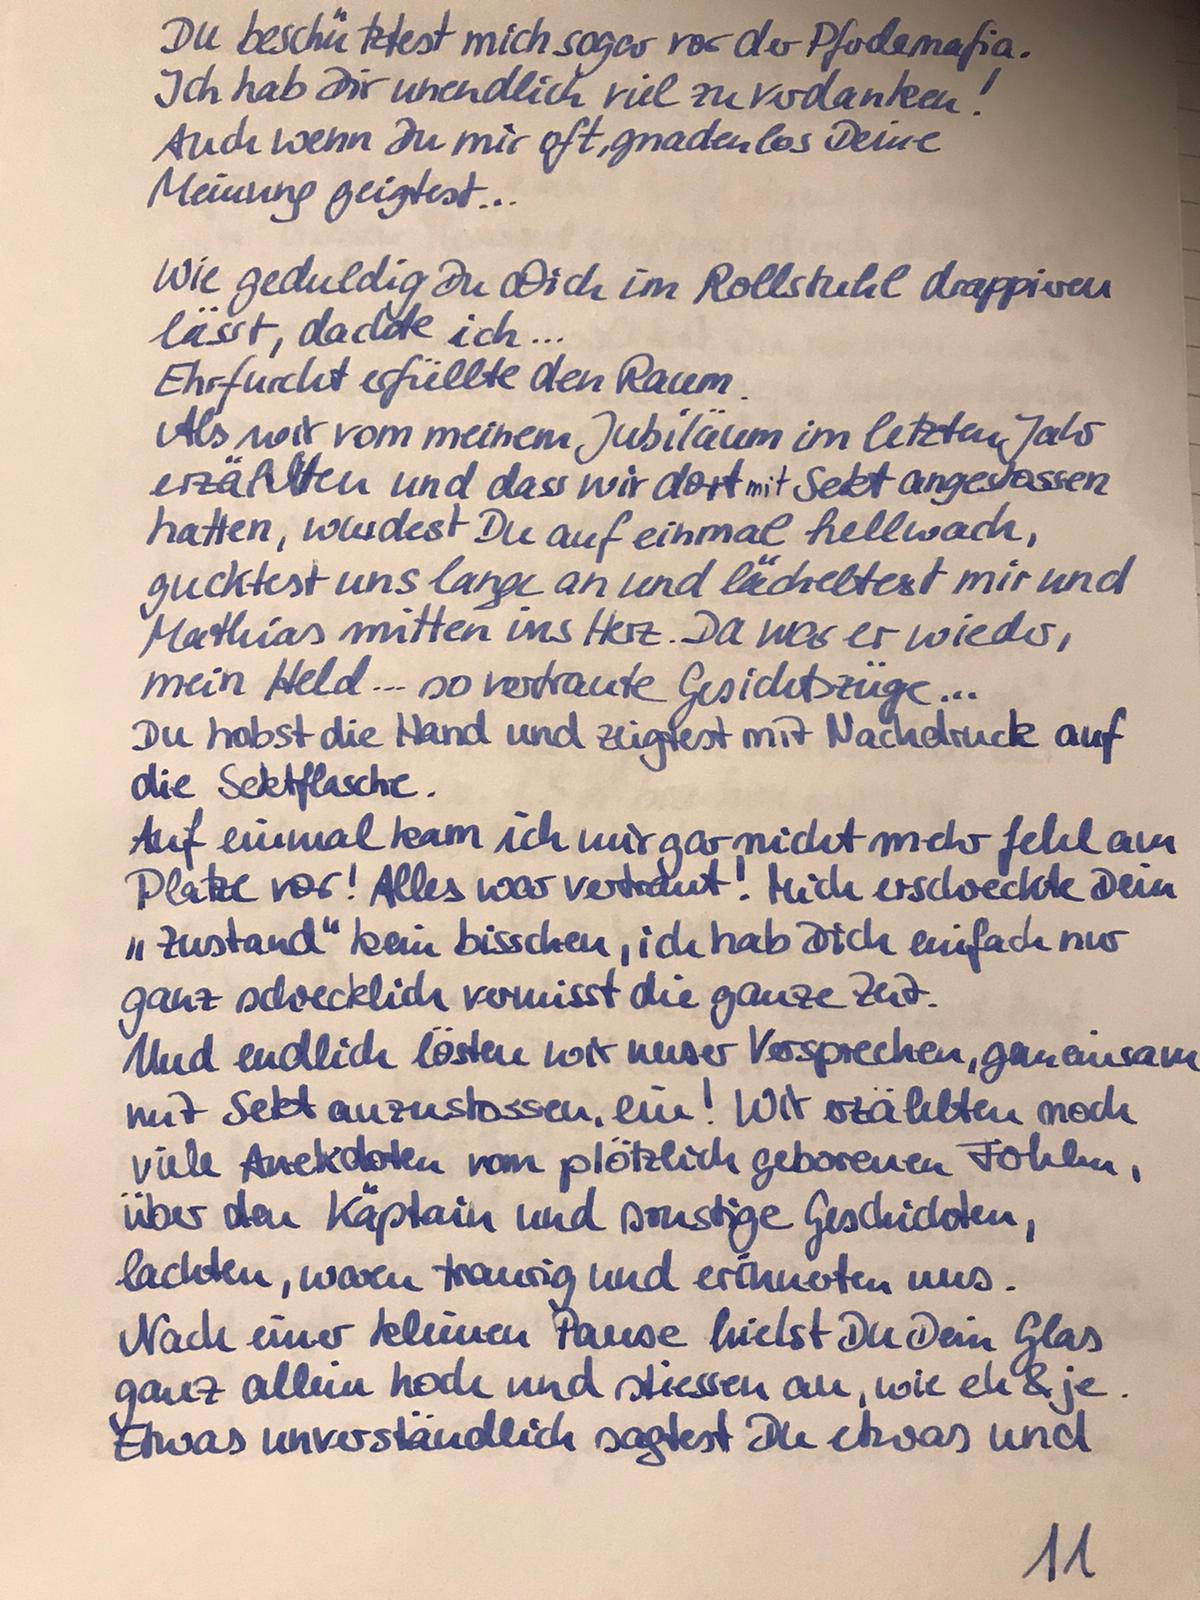 Du beschütztest mich sogar vor der Pferdemafia.
Ich hab Dir unendlich viel zu verdanken!
Auch wenn Du mir oft, gnadenlos Deine
Meinung geigtest...
Wie geduldig Du Dich im Rollstuhl drappieren
lässt, dachte ich...
Ehrfurcht erfüllte den Raum.
Als wir vom meinem Jubiläum im letzten Jahr
erzählten und dass wir dort mit Sekt angestossen
hatten, wurdest Du auf einmal hellwach,
gucktest uns lange an und lächeltest mir und
Mathias mitten ins Herz. Da war er wieder,
mein Held... so vertraute Gesichtszüge...
Du hobst die Hand und zeigtest mit Nachdruck auf
die Sektflasche.
Auf einmal kam ich mir gar nicht mehr fehl am
Platze vor! Alles war vertraut! Mich erschreckte Dein
„Zustand“ kein bisschen, ich hab Dich einfach nur
ganz schrecklich vermisst die ganze Zeit.
Und endlich lösten wir unser Versprechen, gemeinsam
mit Sekt anzustossen, ein! Wir erzählten noch
viele Anekdoten vom plötzlich geborenen Fohlen,
über den Käptain und sonstige Geschichten,
lachten, waren traurig und erinnerten uns.
Nach einer kleinen Pause hielst Du Dein Glas
ganz allein hoch und stiessen an, wie eh & je.
Etwas unverständlich sagtest Du etwas und
11